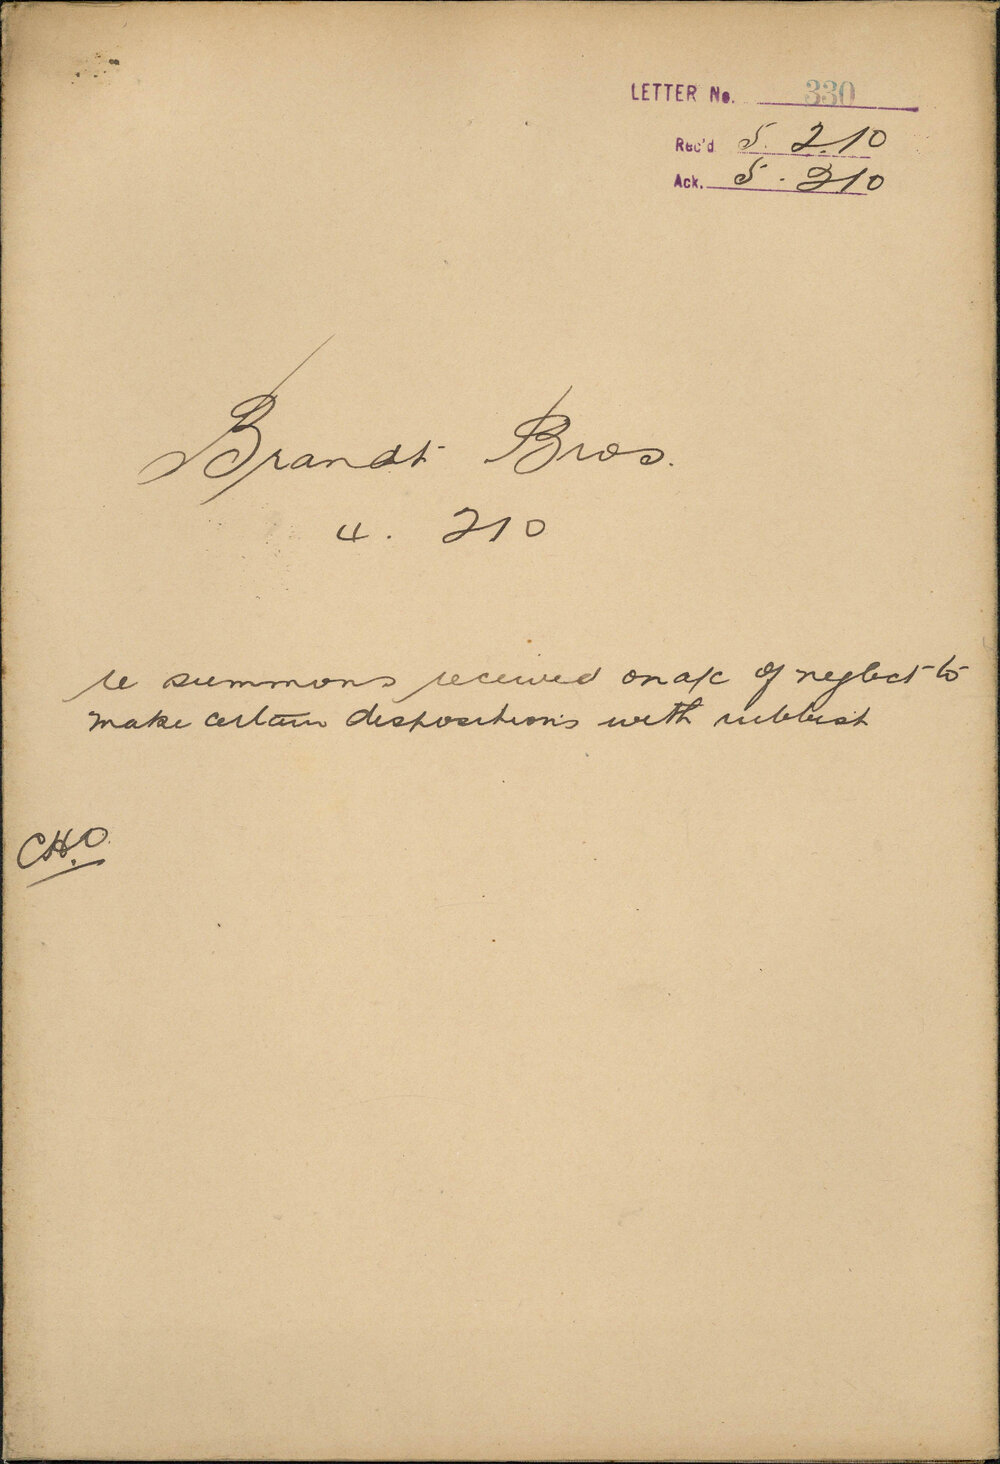 LETTER No. 330
Rec'd 5. 2.10
Ack. 5. 2/10
Brandt Bros.
4. 2 10
re summons received on a/c of neglect to
make certain dispositions with rubbish
CHO